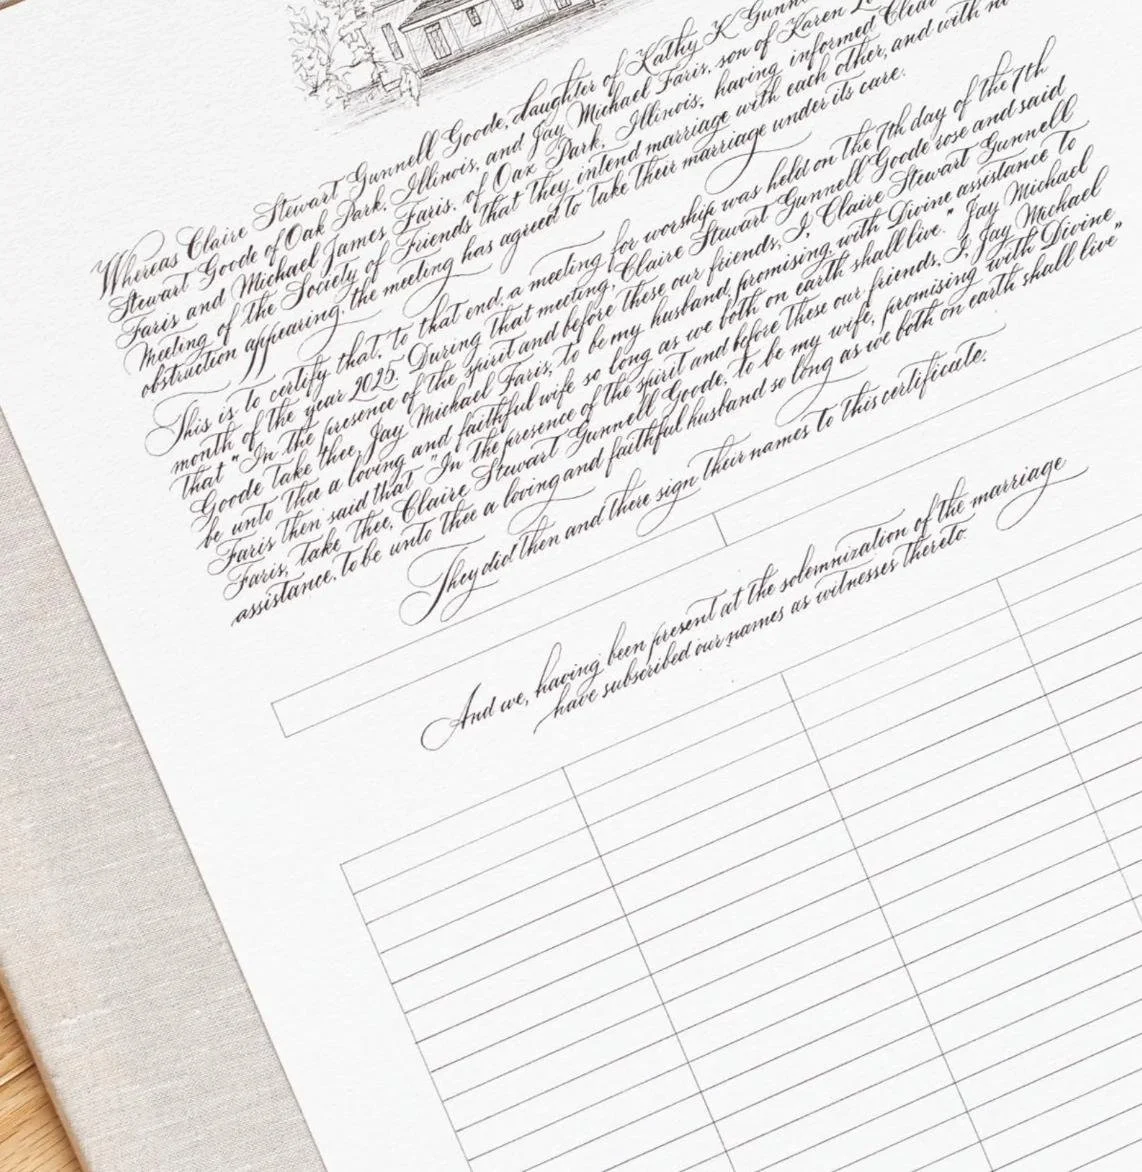 Whereas Claire Stewart Gunnell Goode, daughter of Kathy K Gunne
Stewart Goode of Oak Park, Illinois, and Jay Michael Faris, son of Karen
Faris and Michael James Faris, of Oak Park, Illinois, having informed Clear
Meeting of the Society of Friends that they intend marriage with each other, and with no
obstruction appearing, the meeting has agreed to take their marriage under its care.
This is to certify that, to that end, a meeting for worship was held on the 7th day of the 7th
month of the year 2025. During that meeting, Claire Stewart Gunnell Goode rose and said
that "In the presence of the spirit and before these our friends, I, Claire Stewart Gunnell
Goode take thee, Jay Michael Faris, to be my husband, promising with Divine assistance to
be unto thee a loving and faithful wife so long as we both on earth shall live." Jay Michael
Faris then said that "In the presence of the spirit and before these our friends, I, Jay Michael
Faris, take thee, Claire Stewart Gunnell Goode, to be my wife, promising with Divine
assistance, to be unto thee a loving and faithful husband so long as we both on earth shall live"
They did then and there sign their names to this certificate.
And we, having been present at the solemnization of the marriage
have subscribed our names as witnesses thereto.